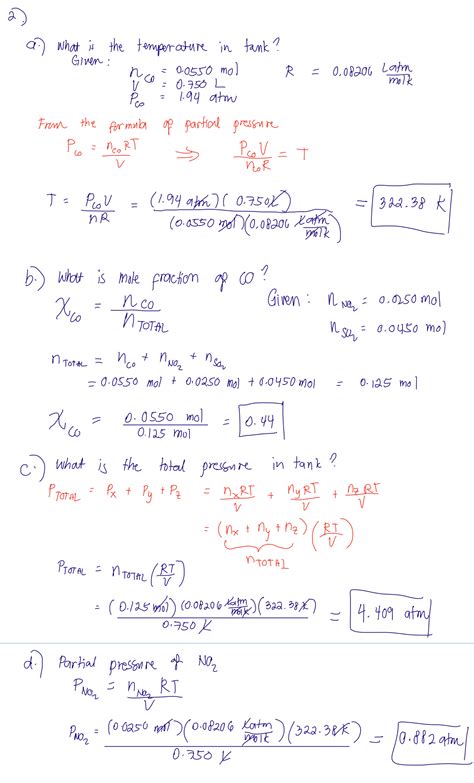 2.)
a.) What is the temperature in tank?
Given: n_CO = 0.0550 mol R = 0.08206 Latm/molK
V = 0.750 L
P_CO = 1.94 atm
From the formula of partial pressure
P_CO = n_CO RT / V ⇒ P_CO V / n_CO R = T
T = P_CO V / nR = (1.94 atm)(0.750L) / (0.0550 mol)(0.08206 Latm/molK) = 322.38 K
b.) What is mole fraction of CO?
X_CO = n_CO / n_TOTAL Given: n_NO2 = 0.0250 mol
n_SO2 = 0.0450 mol
n_TOTAL = n_CO + n_NO2 + n_SO2
= 0.0550 mol + 0.0250 mol + 0.0450 mol = 0.125 mol
X_CO = 0.0550 mol / 0.125 mol = 0.44
c.) What is the total pressure in tank?
P_TOTAL = P_x + P_y + P_z = n_x RT / V + n_y RT / V + n_z RT / V
= (n_x + n_y + n_z) (RT / V)
n_TOTAL
P_TOTAL = n_TOTAL (RT / V)
= (0.125 mol)(0.08206 Latm/molK)(322.38K) / 0.750 L = 4.409 atm
d.) Partial pressure of NO2
P_NO2 = n_NO2 RT / V
P_NO2 = (0.0250 mol)(0.08206 Latm/molK)(322.38K) / 0.750 L = 0.882 atm